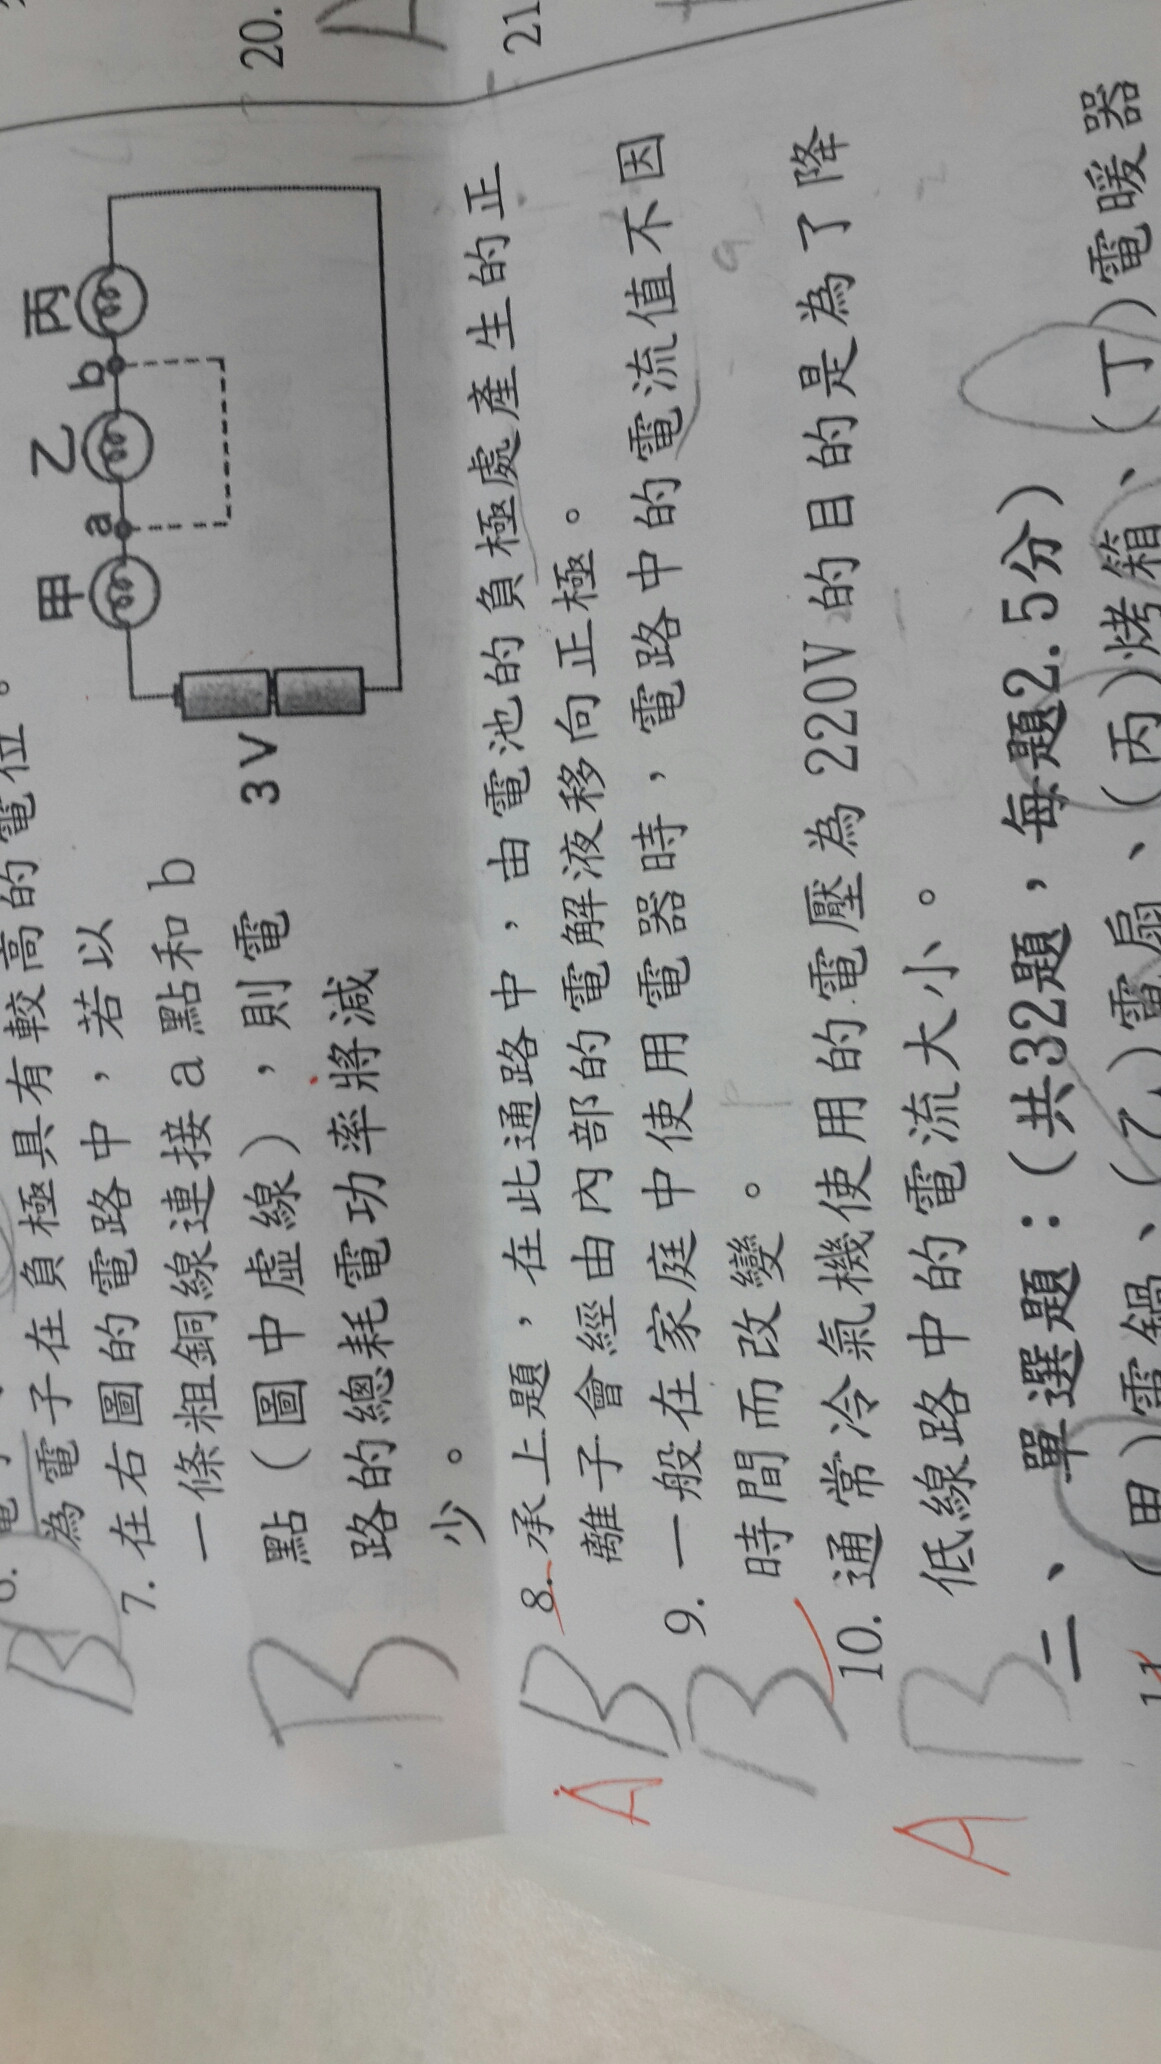 為電子在負極具有較高的電位。
7. 在右圖的電路中，若以
一條粗銅線連接a點和b
點（圖中虛線），則電
路的總耗電功率將減
少。
甲 a 乙 b 丙
3V
8. 承上題，在此通路中，由電池的負極處產生的正
離子會經由內部的電解液移向正極。
9. 一般在家庭中使用電器時，電路中的電流值不因
時間而改變。
10. 通常冷氣機使用的電壓為220V的目的是為了降
低線路中的電流大小。
二、單選題：(共32題，每題2.5分)
(甲)電鍋、(乙)電扇、(丙)烤箱、(丁)電暖器
B
B
B
A
B
B
A
20.
21